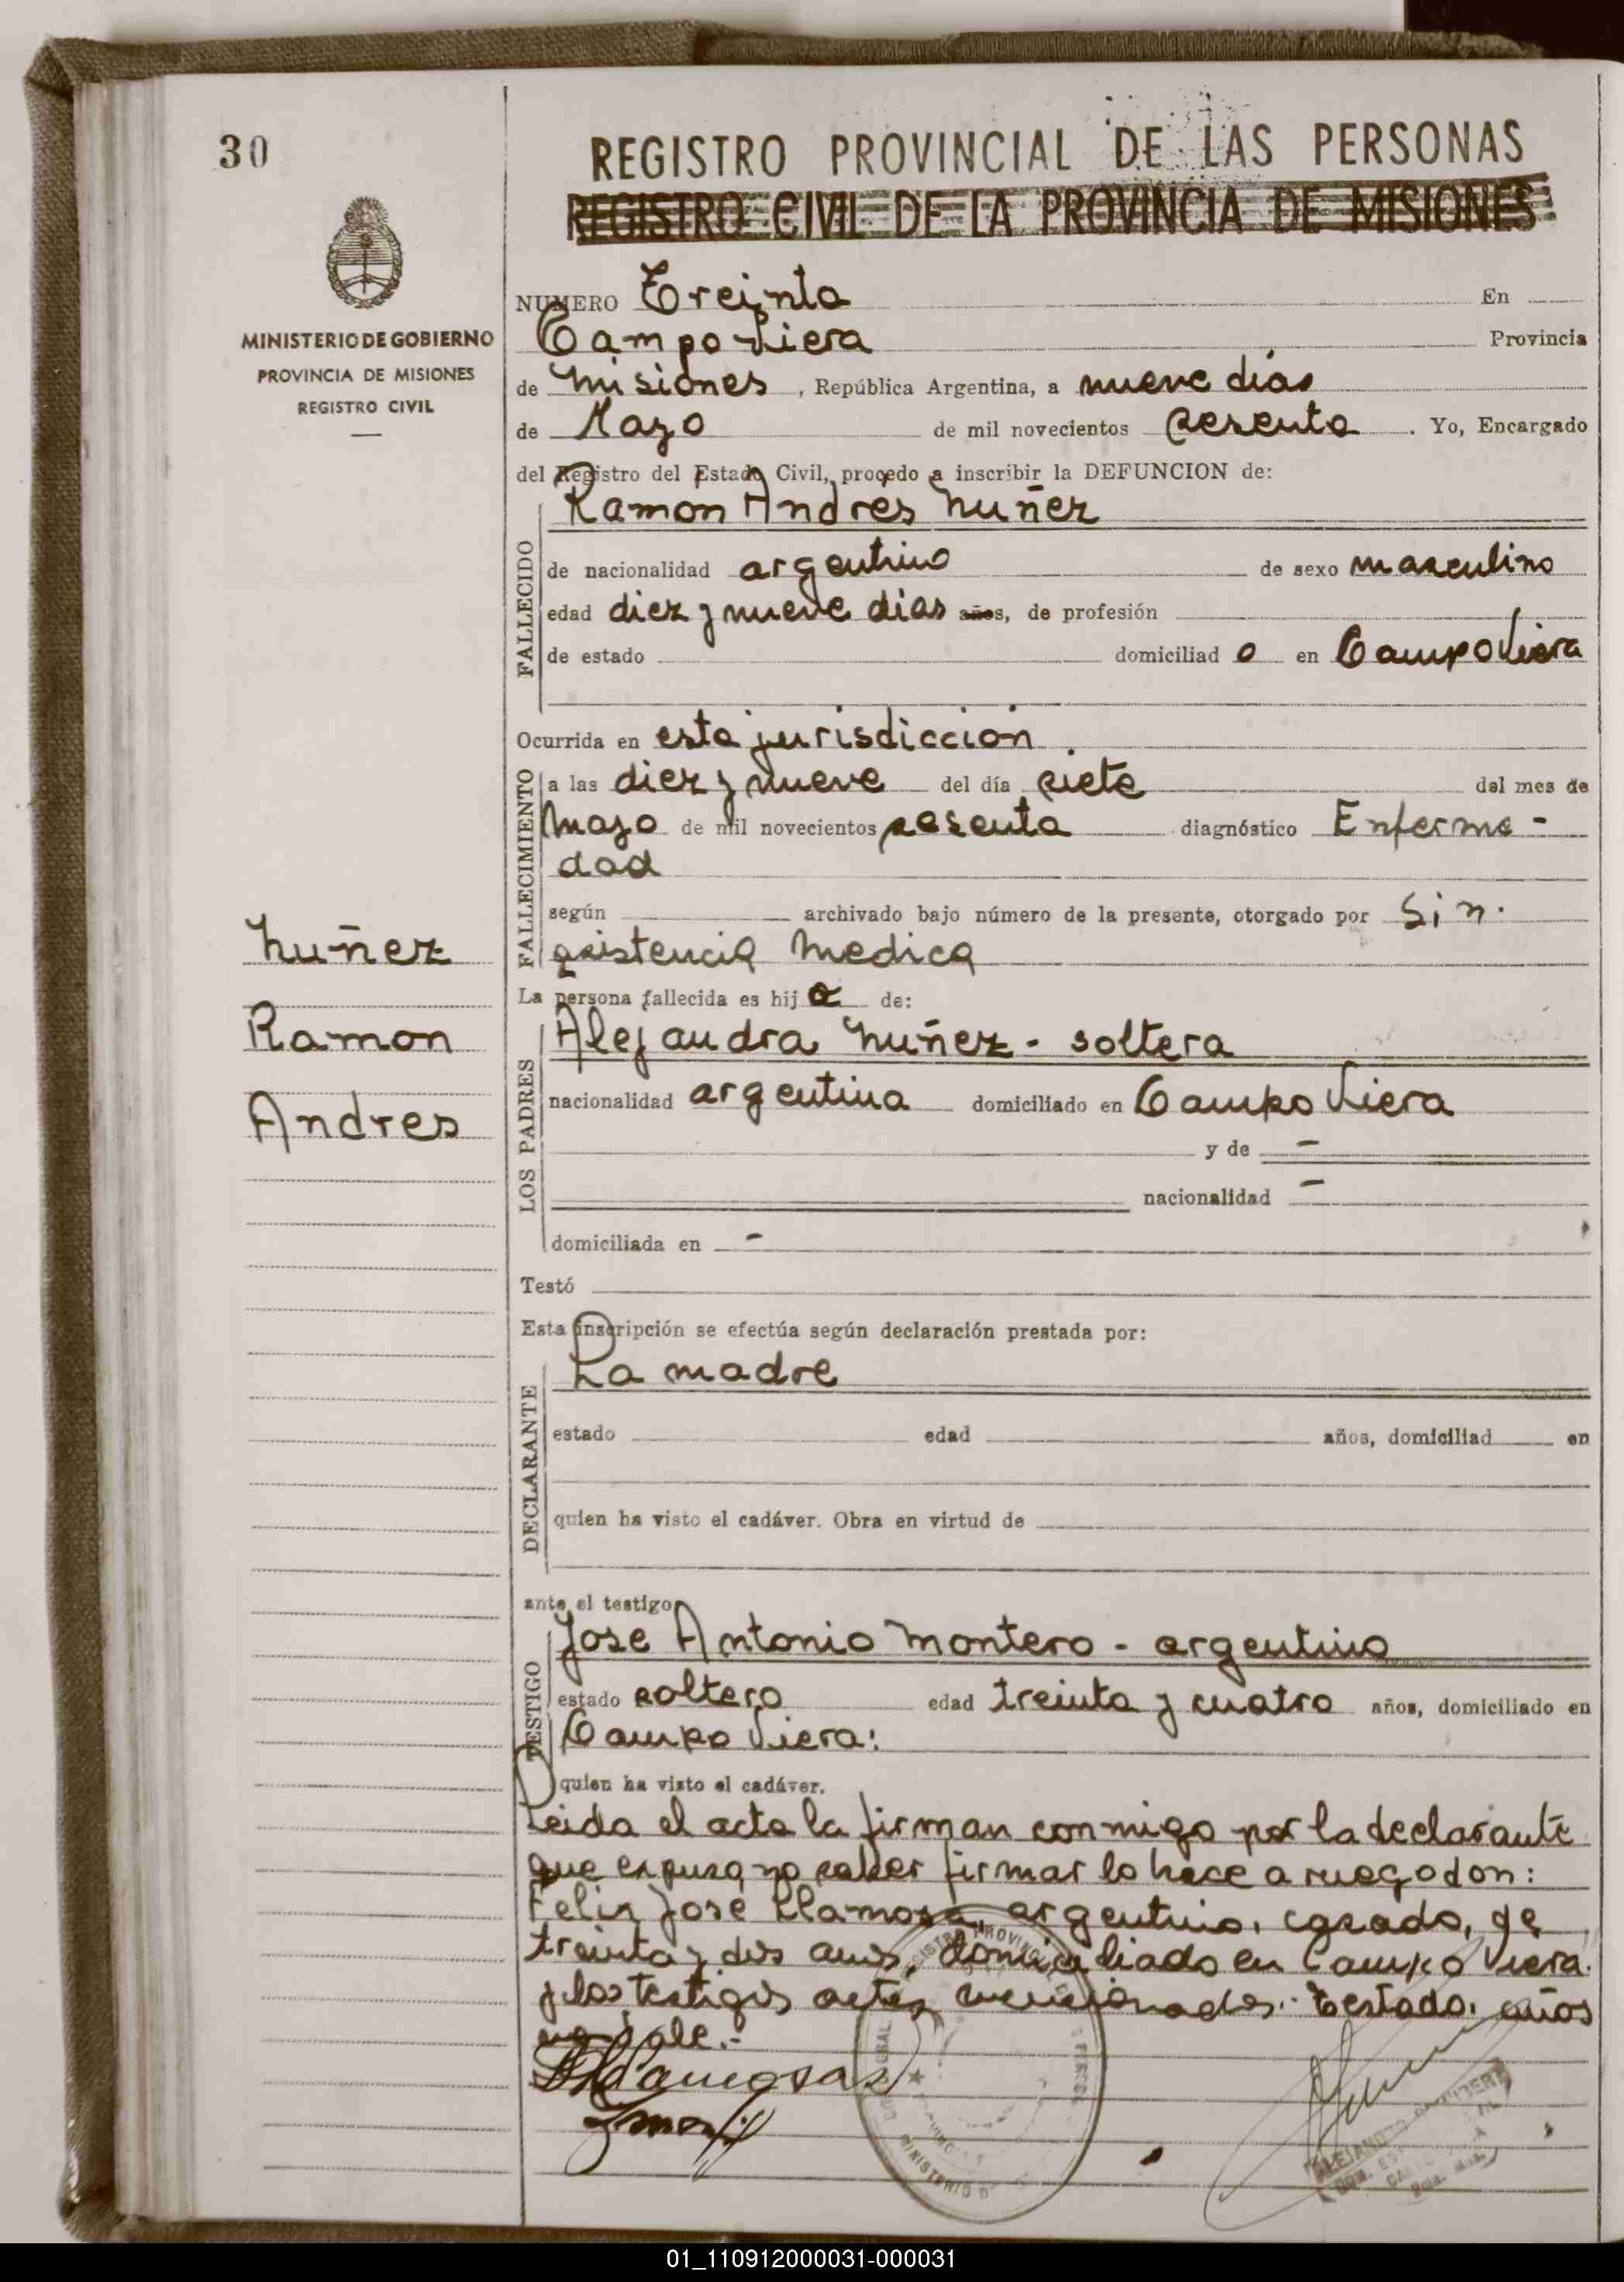 30
MINISTERIO DE GOBIERNO
PROVINCIA DE MISIONES
REGISTRO CIVIL
REGISTRO PROVINCIAL DE LAS PERSONAS
REGISTRO CIVIL DE LA PROVINCIA DE MISIONES
NUMERO Treinta En
Campo Viera Provincia
de Misiones, República Argentina, a nueve dias
de Mayo de mil novecientos sesenta. Yo, Encargado
del Registro del Estado Civil, procedo a inscribir la DEFUNCION de:
Ramon Andres Nuñez
FALLECIDO
de nacionalidad argentino de sexo masculino
edad diez y nueve dias años, de profesión
de estado domiciliad o en Campo Viera
Ocurrida en esta jurisdicción.
FALLECIMIENTO
a las diez y nueve del día siete del mes de
Mayo de mil novecientos sesenta diagnóstico Enferme-
dad
según archivado bajo número de la presente, otorgado por Sin.
asistencia Medica
La persona fallecida es hij o de:
Nuñez
Ramon
Andres
LOS PADRES
Alejandra Nuñez - soltera
nacionalidad argentina domiciliado en Campo Viera
y de -
nacionalidad -
domiciliada en -
Testó
Esta inscripción se efectúa según declaración prestada por:
DECLARANTE
La madre
estado edad años, domiciliad en
quien ha visto el cadáver. Obra en virtud de
ante el testigo
TESTIGO
Jose Antonio Montero - argentino
estado soltero edad treinta y cuatro años, domiciliado en
Campo Viera:
quien ha visto el cadáver.
Leida el acta la firman conmigo por la declarante
que expuso no saber firmar lo hace a ruego don:
Felix Jose Llamosa, argentino, casado, de
treinta y dos años, domiciliado en Campo Viera.
y los testigos antes mencionados. Testado: años
no vale.-
MINISTERIO D
01_110912000031-000031